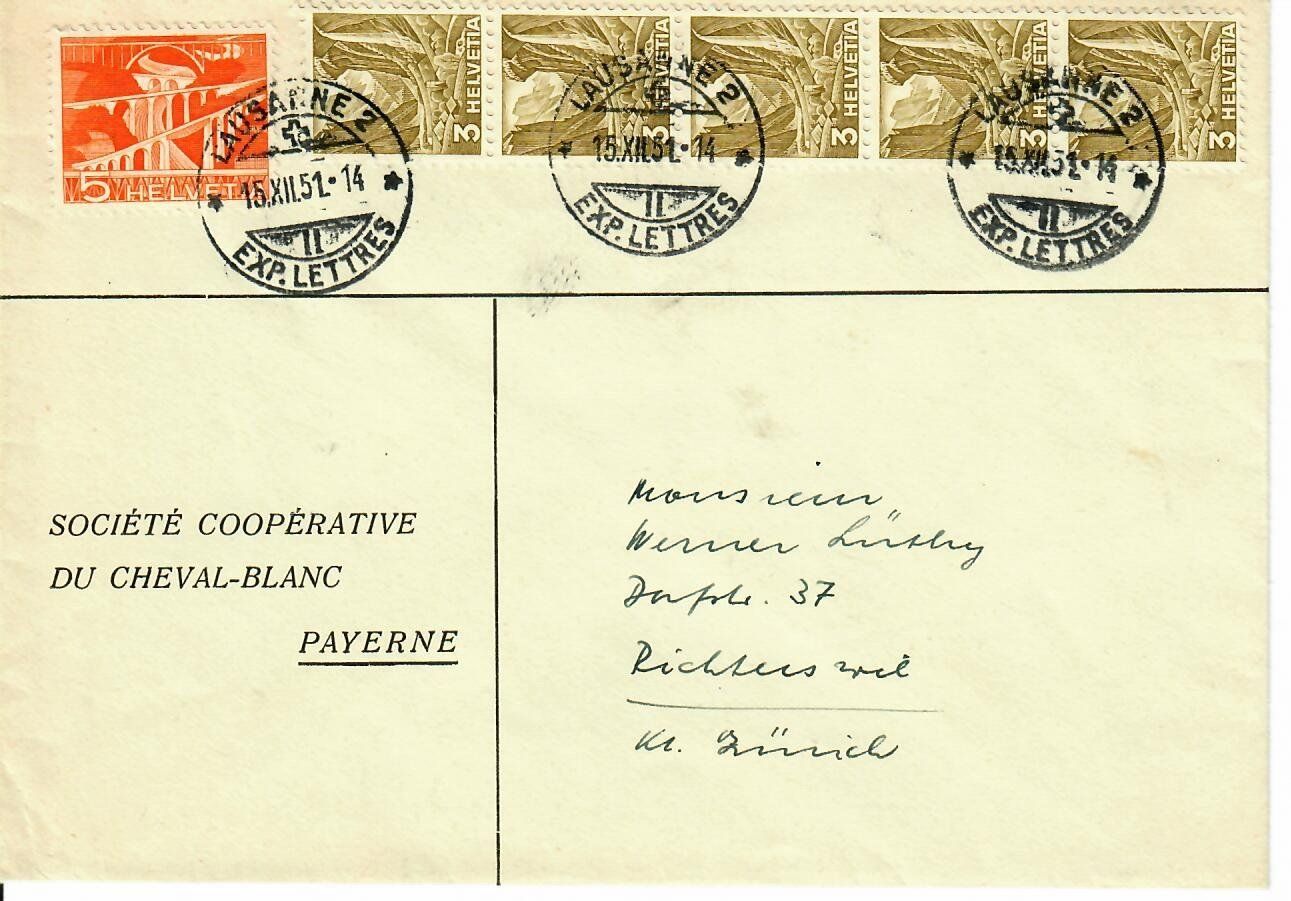 5 HELVETIA
3 HELVETIA
3 HELVETIA
3 HELVETIA
3 HELVETIA
3 HELVETIA
LAUSANNE 2
15.XII.51.-14
II
EXP. LETTRES
LAUSANNE 2
15.XII.51.-14
II
EXP. LETTRES
LAUSANNE 2
15.XII.51.-14
II
EXP. LETTRES
SOCIÉTÉ COOPÉRATIVE
DU CHEVAL-BLANC
PAYERNE
Monsieur
Werner Lüthy
Dorfstr. 37
Richterswil
Kt. Zürich